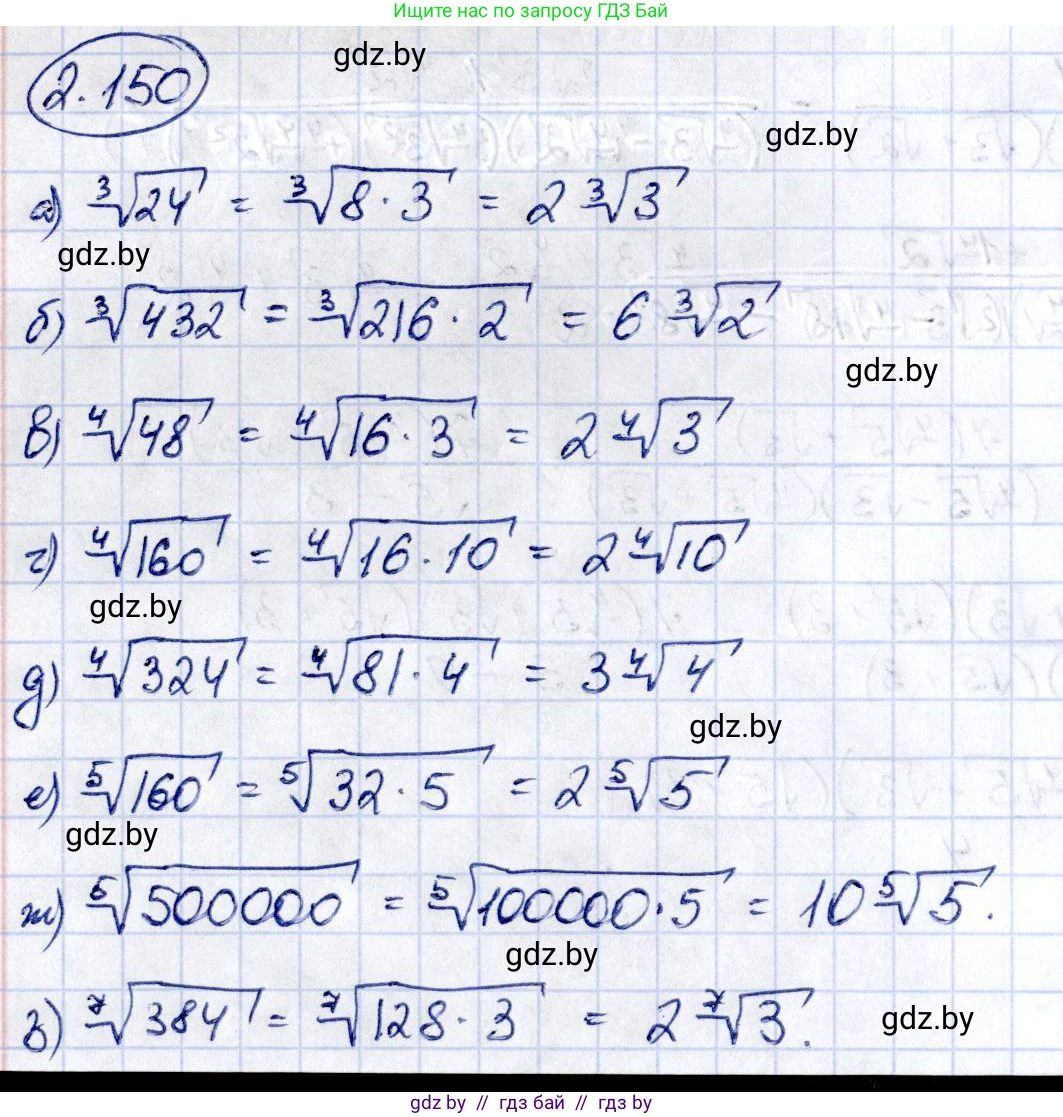 Ищите нас по запросу ГДЗ Бай
gdz.by
2.150
gdz.by
а) ∛24 = ∛8 · 3 = 2 ∛3
gdz.by
б) ∛432 = ∛216 · 2 = 6 ∛2
gdz.by
в) ∜48 = ∜16 · 3 = 2 ∜3
г) ∜160 = ∜16 · 10 = 2 ∜10
gdz.by
д) ∜324 = ∜81 · 4 = 3 ∜4
gdz.by
е) ⁵√160 = ⁵√32 · 5 = 2 ⁵√5
gdz.by
ж) ⁵√500000 = ⁵√100000 · 5 = 10 ⁵√5.
gdz.by
з) ⁷√384 = ⁷√128 · 3 = 2 ⁷√3.
gdz.by
gdz.by // гдз бай // gdz.by